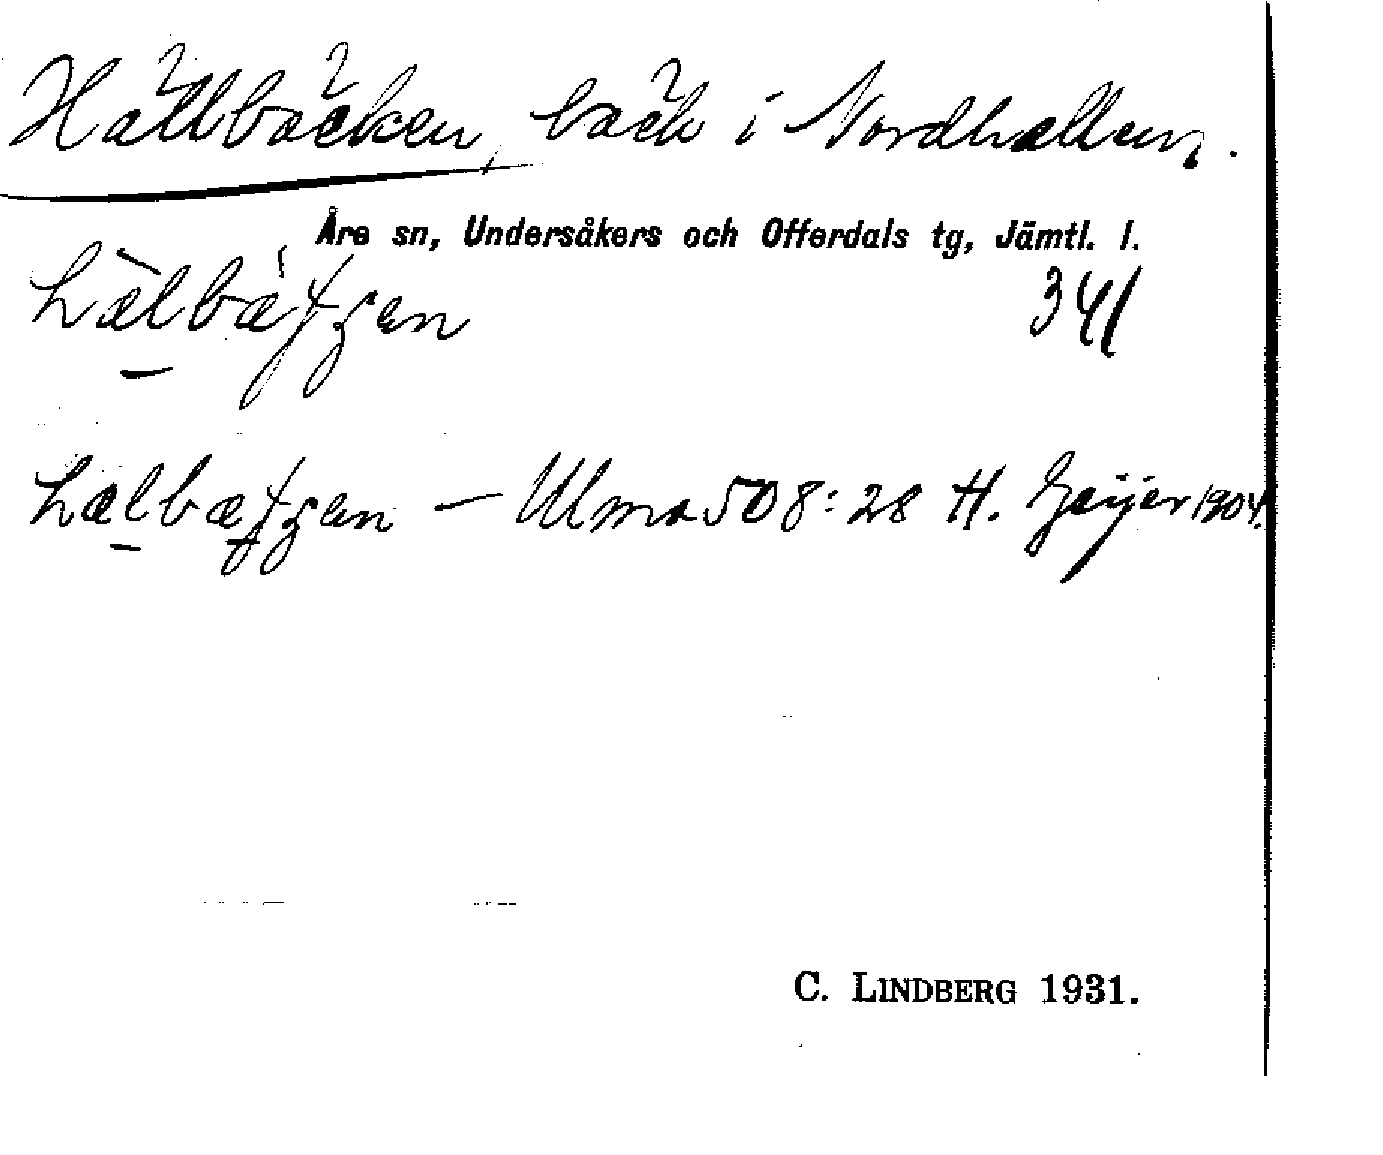 Hällbäcken, bäck i Nordhallen.
Åre sn, Undersåkers och Offerdals tg, Jämtl. l.
341
— Ulma 508:28 H. Geijer 1904.
C. LINDBERG 1931.